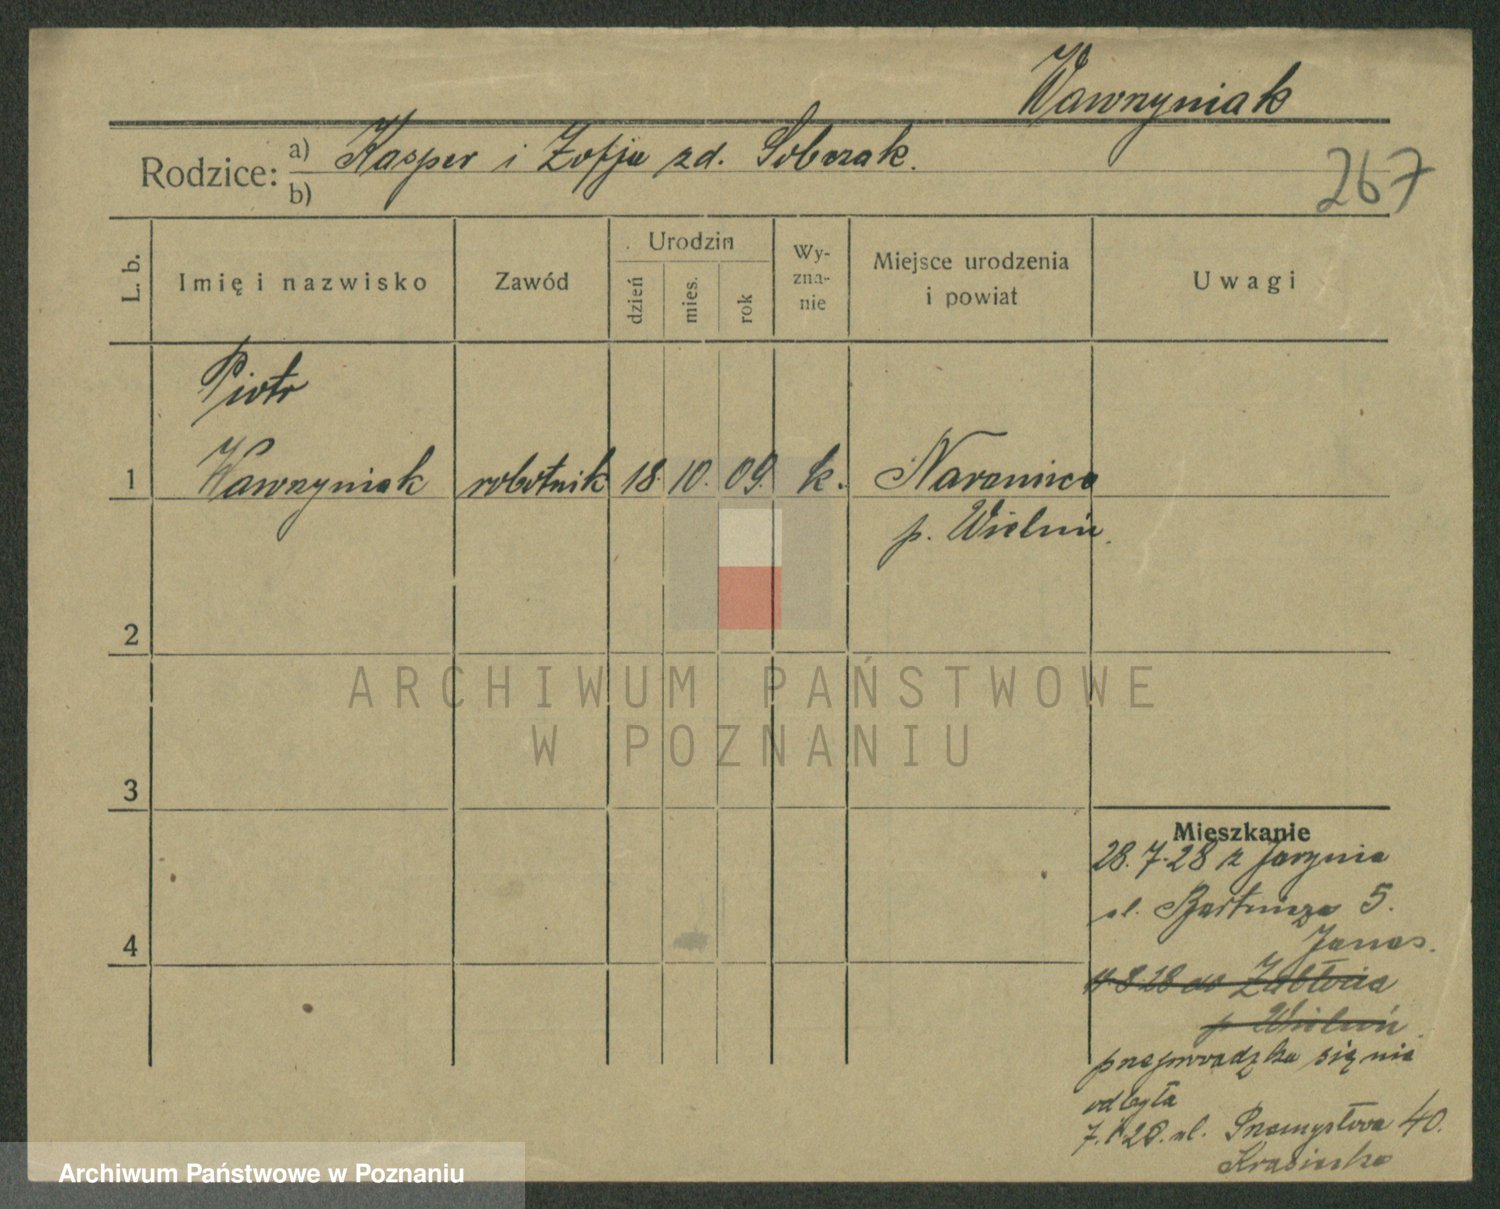 Wawrzyniak
Rodzice: a) Kasper i Zofja zd. Sobczak.
b)
267
L. b.
Imię i nazwisko
Zawód
Urodzin
dzień
mies.
rok
Wy-
zna-
nie
Miejsce urodzenia
i powiat
Uwagi
Piotr
1 Wawrzyniak robotnik 18. 10. 09. k. Naramice
p. Wieluń.
2
ARCHIWUM PAŃSTWOWE
W POZNANIU
3
Mieszkanie
28.7.28 z
ul. 5.
Janas.
4
8.28 do Zabłocia
p Wieluń
przeprowadzka się nie
odbyła
28. ul. Przemysłowa 40.
Krasiecka
Archiwum Państwowe w Poznaniu